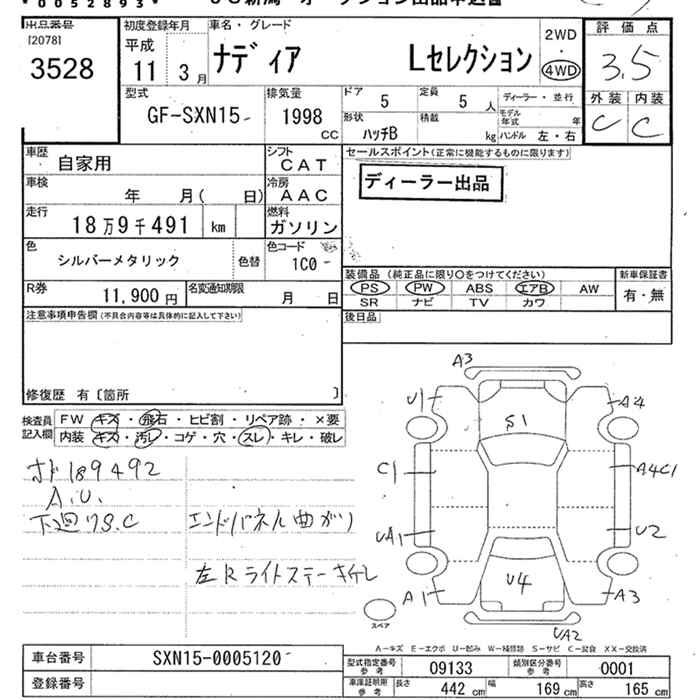 0052893
出品番号 初度登録年月 車名・グレード 2WD 評価点
[2078] 平成 ナディア Lセレクション ・
3528 11 3月 4WD 3.5
型式 排気量 ドア 定員 ディーラー・並行 外装 内装
GF-SXN15 1998 CC 5 5人 モデル年式 年 C C
形状 積載
ハッチB kg ハンドル 左・右
車歴 自家用 シフト CAT セールスポイント(正常に機能するものに限ります)
車検 年 月( 日) 冷房 AAC ディーラー出品
走行 18万9千491 km 燃料 ガソリン
色 シルバーメタリック 色替 色コード 1C0-
装備品(純正品に限り○をつけてください) 新車保証書
R券 11,900円 名変通知期限 月 日 PS PW ABS エアB AW 有・無
SR ナビ TV カワ
注意事項申告欄(不具合内容等は具体的に記入して下さい) 後日品
修復歴 有〔箇所 〕
検査員 FW キズ・飛石・ヒビ割・リペア跡・×要
記入欄 内装 キズ・汚レ・コゲ・穴・スレ・キレ・破レ
A3
U1 A4
S1
C1 A4C1
UA1 U2
U4
A1 A3
UA2
スペア
189492
A.U.
下廻りS.C エンドパネル曲がり
左Rライトステーキレ
A-キズ E-エクボ U-凹み W-補修跡 S-サビ C-腐食 XX-交換済
車台番号 SXN15-0005120 型式指定番号 参考 09133 類別区分番号 参考 0001
登録番号 車庫証明用 参考 長さ 442cm 幅 169cm 高さ 165cm